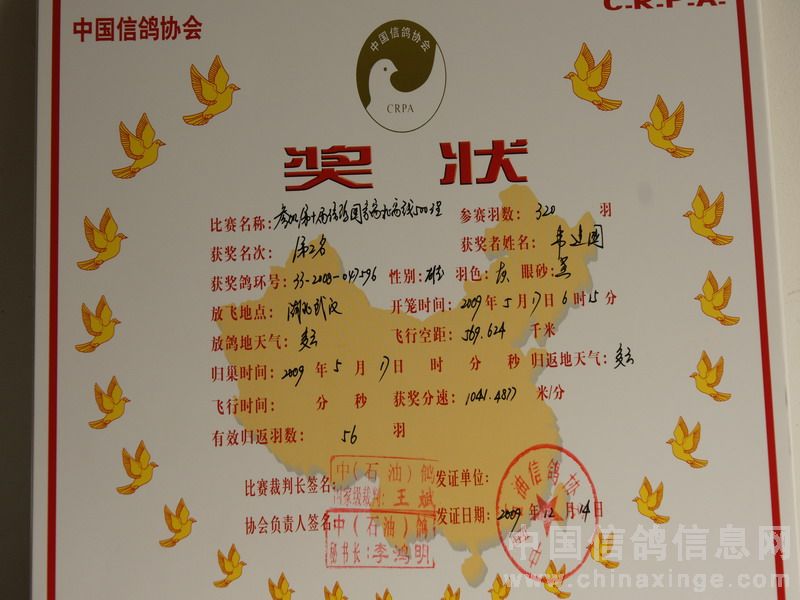 中国信鸽协会
C.R.P.A.
中国信鸽协会
CRPA
奖 状
比赛名称：参加第十届 500 参赛羽数：320 羽
获奖名次：第2名 获奖者姓名：韦建国
获奖鸽环号：33-2008-047596 性别：雄 羽色：灰 眼砂：黄
放飞地点：湖北武汉 开笼时间：2009年5月17日6时15分
放鸽地天气：多云 飞行空距：569.624 千米
归巢时间：2009年5月17日 时 分 秒 归返地天气：多云
飞行时间： 分 秒 获奖分速：1041.4877 米/分
有效归返羽数：56 羽
比赛裁判长签名： 发证单位：
中(石油)鸽
国家级裁判：王斌
协会负责人签名： 发证日期：2009年12月14日
中(石油)鸽
秘书长：李鸿明
油信鸽协
中国信鸽信息网
www.chinaxinge.com